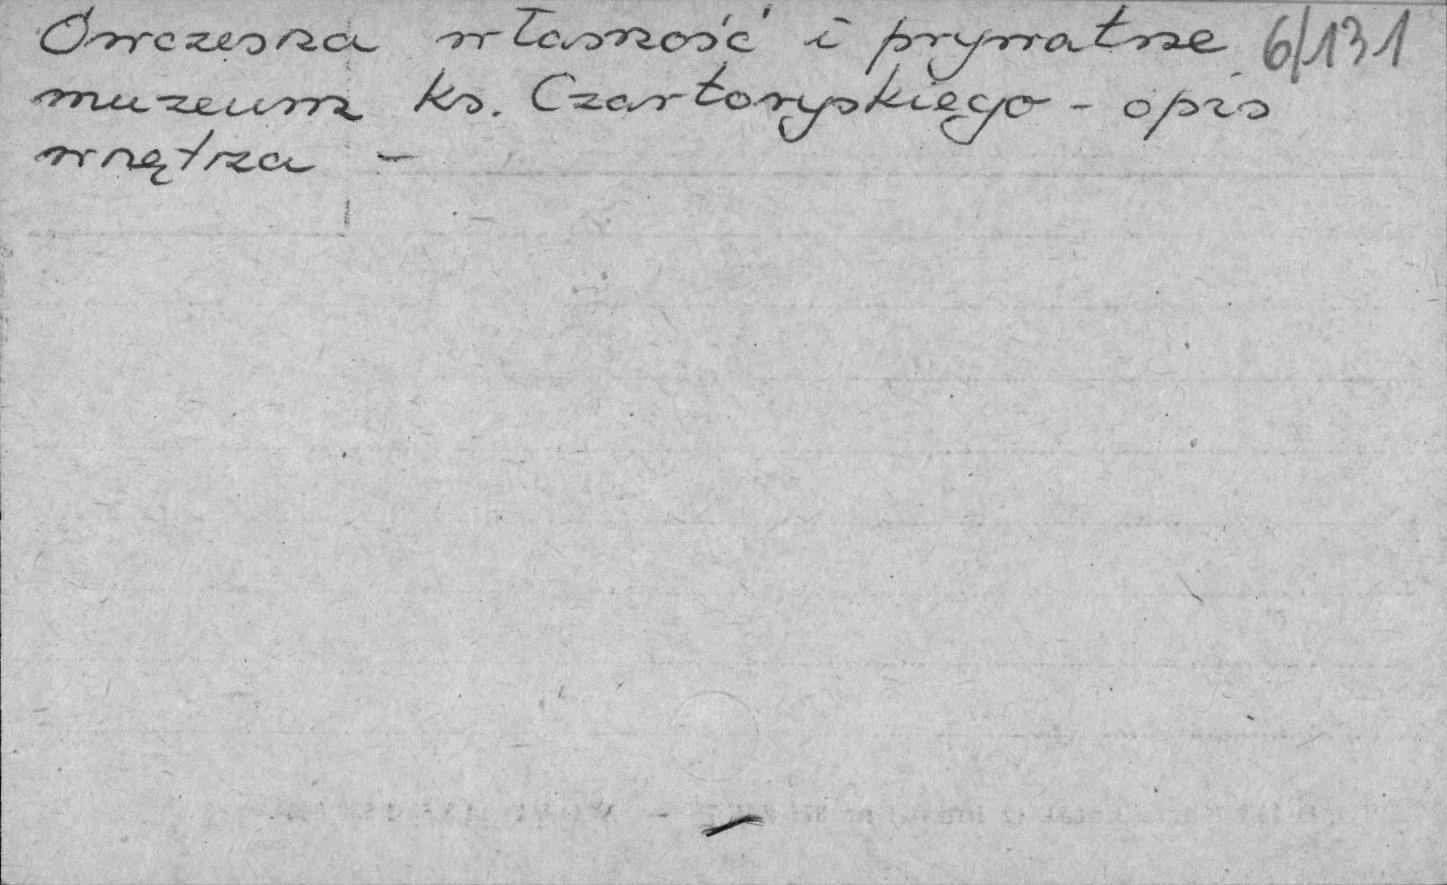 Ówczesna własność i prywatne 6/131
muzeum ks. Czartoryskiego - opis
wnętrza -